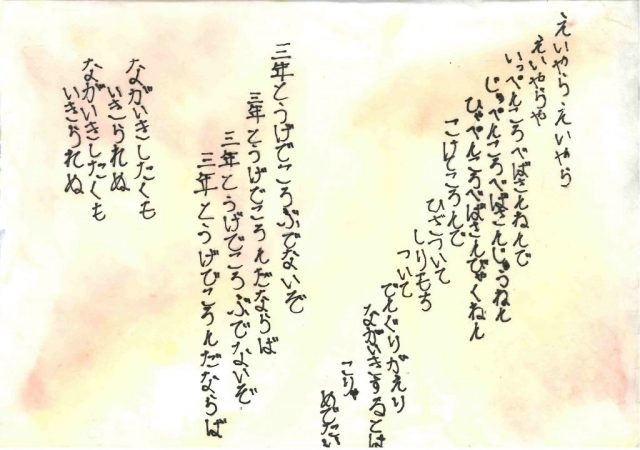 えいやら えいやら
えいやらや
いっぺんころべばさんねんで
じゅっぺんころべばさんじゅうねん
ひゃっぺんころべばさんびゃくねん
こけてころんで
ひざついて
しりもち
ついて
でんぐりがえり
ながいきするとは
こりゃ
めでたい
三年とうげでころぶでないぞ
三年とうげでころんだならば
三年とうげでころぶでないぞ
三年とうげでころんだならば
ながいきしたくも
いきられぬ
ながいきしたくも
いきられぬ